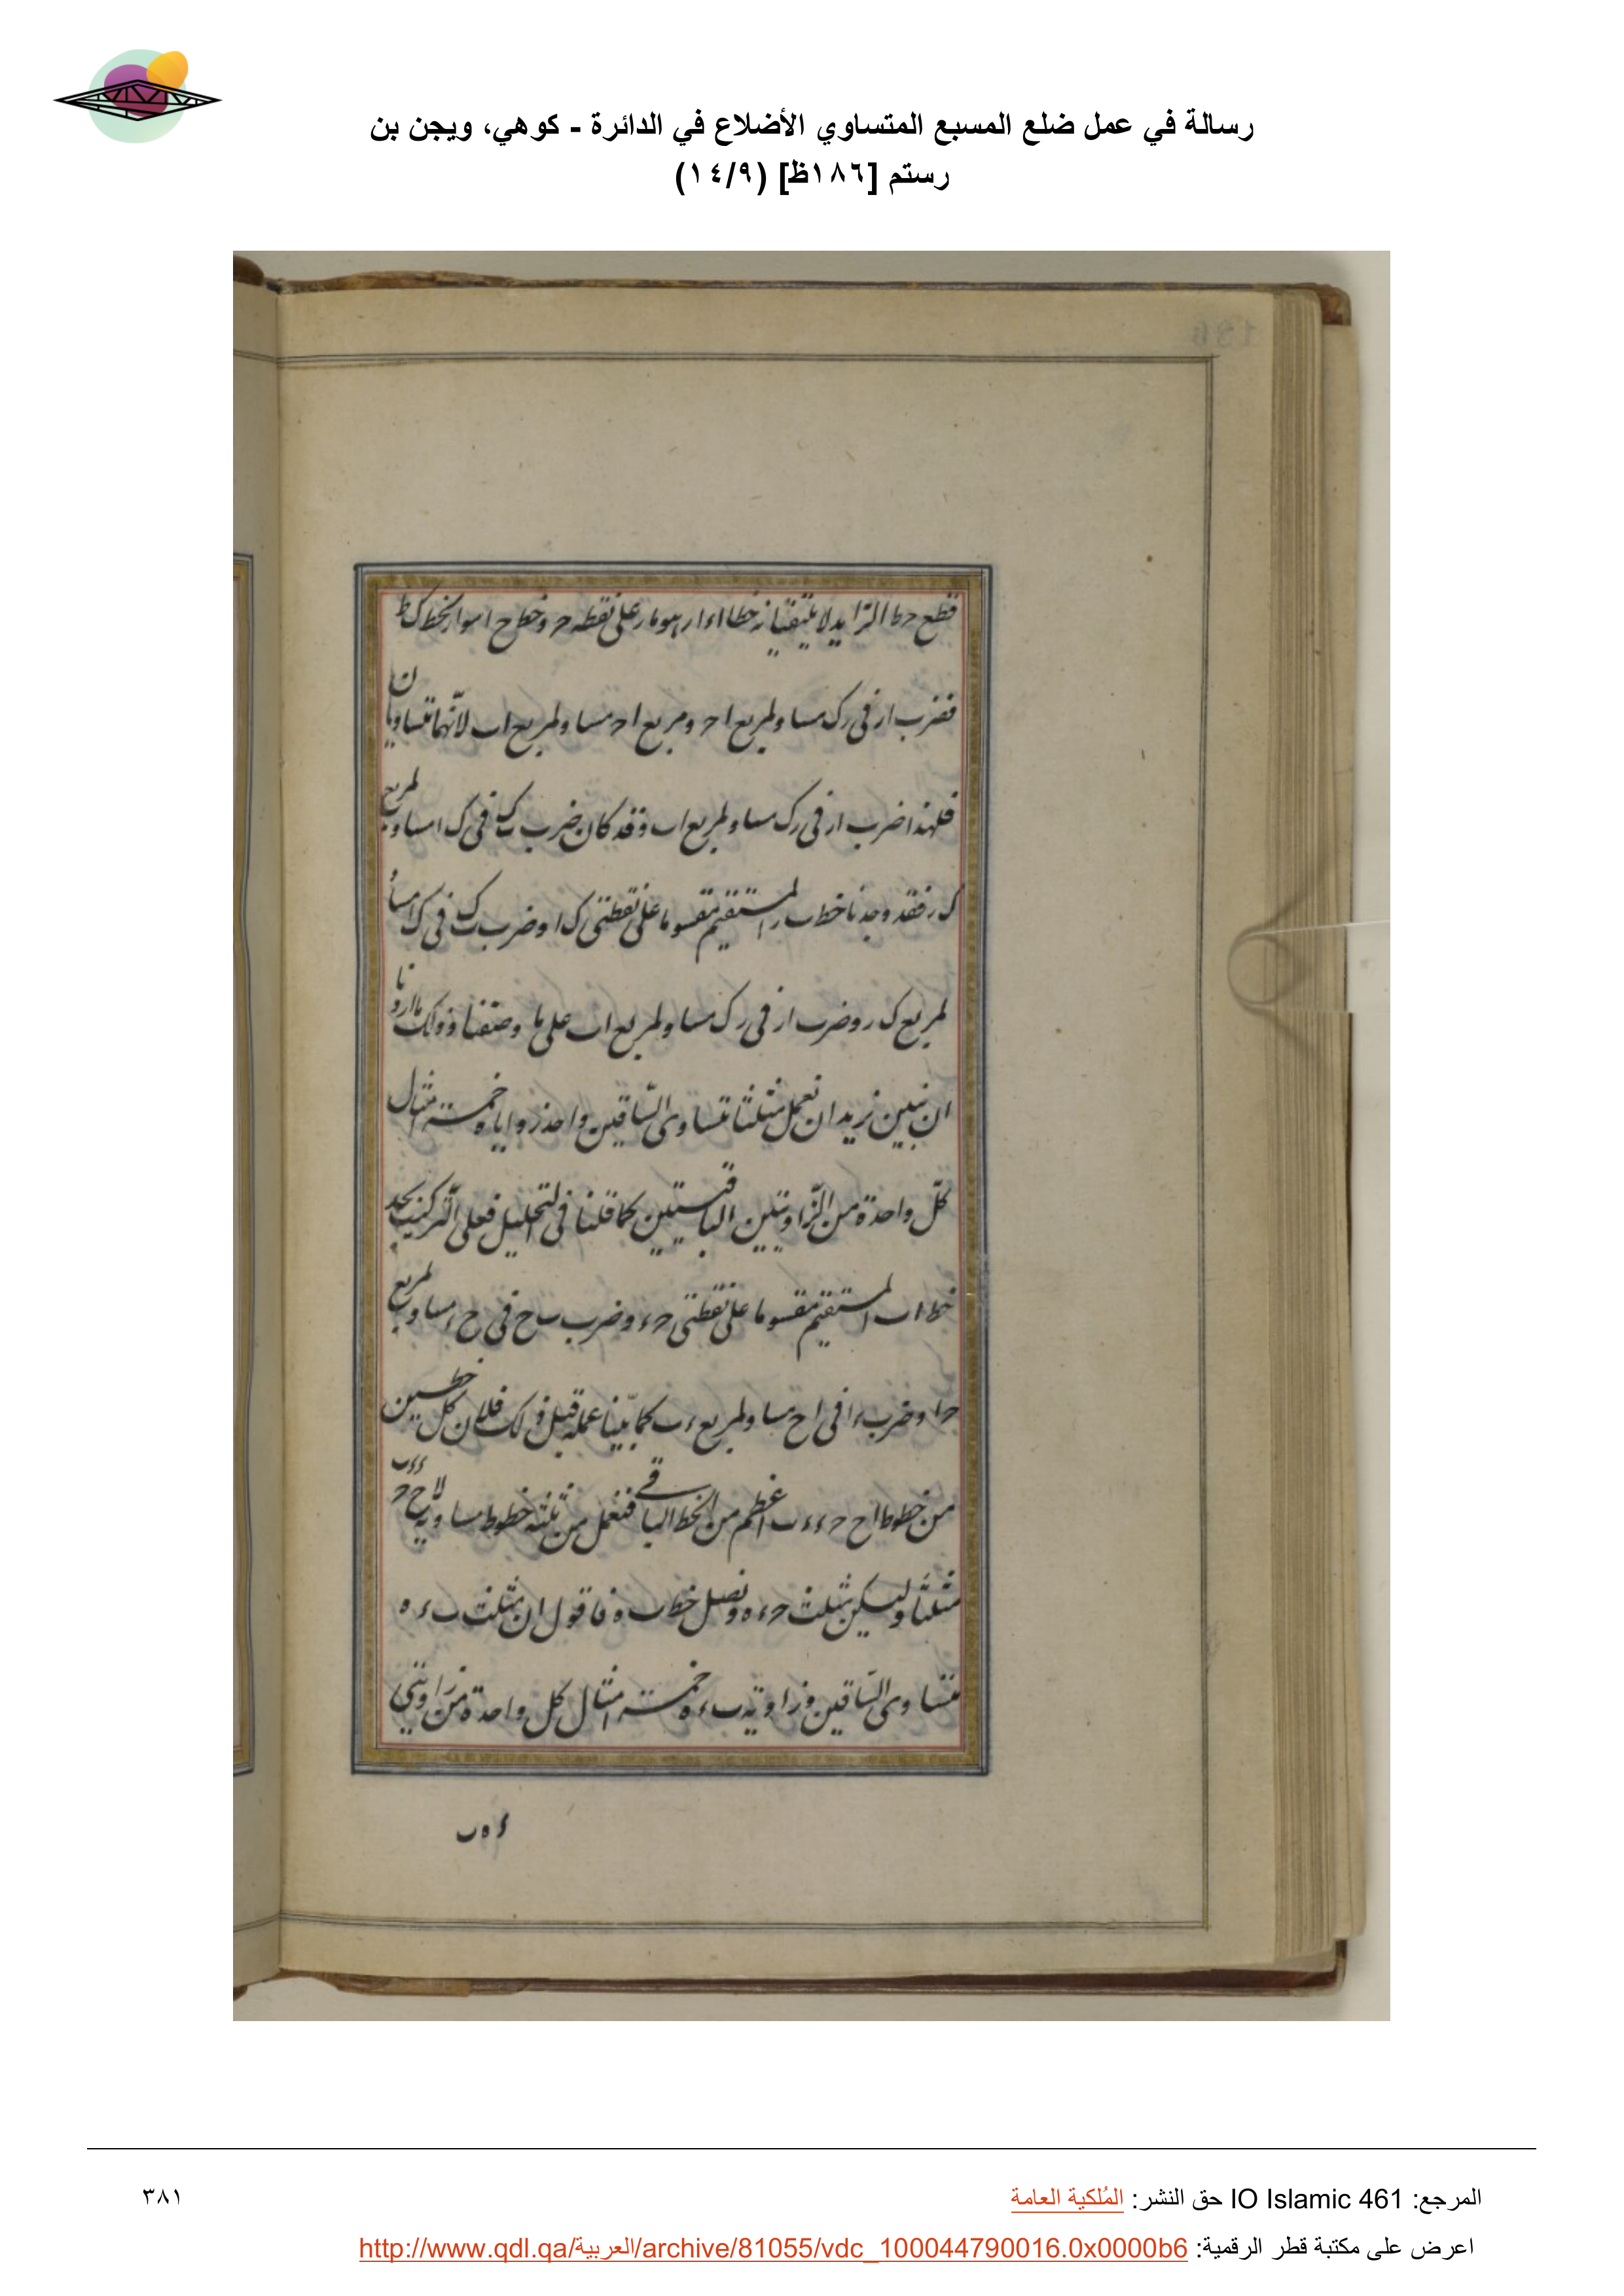 رسالة في عمل ضلع المسبع المتساوي الأضلاع في الدائرة - كوهي، ويجن بن
رستم [١٨٦ظ] (١٤/٩)
قطع حط الزايد لا يلتقيان خطا اء ار هو مار على نقطه ح وخط ح ا مواز لخط ك ط
فضرب ار فى رك مساو لمربع اح ومربع اح مساو لمربع اب لانهما متساويان
فلهذا ضرب ار فى رك مساو لمربع اب وقد كان ضرب ب ك فى ك ا مساو لمربع
ك ر فقد وجدنا خط ب ر المستقيم مقسوما على نقطتى ك ا وضرب ب ك فى ك ا مساو
لمربع ك ر وضرب ار فى رك مساو لمربع اب على ما وصفنا وذلك ما اردنا
ان نبين نريد ان نعمل مثلثا متساوى الساقين واحد زواياه خمسة امثال
كل واحدة من الزاويتين الباقيتين كما قلنا فى التحليل فعلى التركيب نجد
خط اب المستقيم مقسوما على نقطتى ح ء وضرب ب ح فى ح ء مساو لمربع
ح ا وضرب ء ا فى اح مساو لمربع ء ب كما بينا عمله قبل ذلك فلان كل خطين
من خطوط اح ح ء ء ب اعظم من الخط الباقى فنعمل من ثلثه خطوط مساويه لاح ح ء ء ب
مثلثا وليكن مثلث ح ء ه ونصل خط ب ه فاقول ان مثلث ب ء ه
متساوى الساقين وزاوية ب ء ه خمسة امثال كل واحدة من زاويتى
ء ه ب
المرجع: IO Islamic 461 حق النشر: المُلكية العامة
٣٨١
اعرض على مكتبة قطر الرقمية: http://www.qdl.qa/العربية/archive/81055/vdc_100044790016.0x0000b6